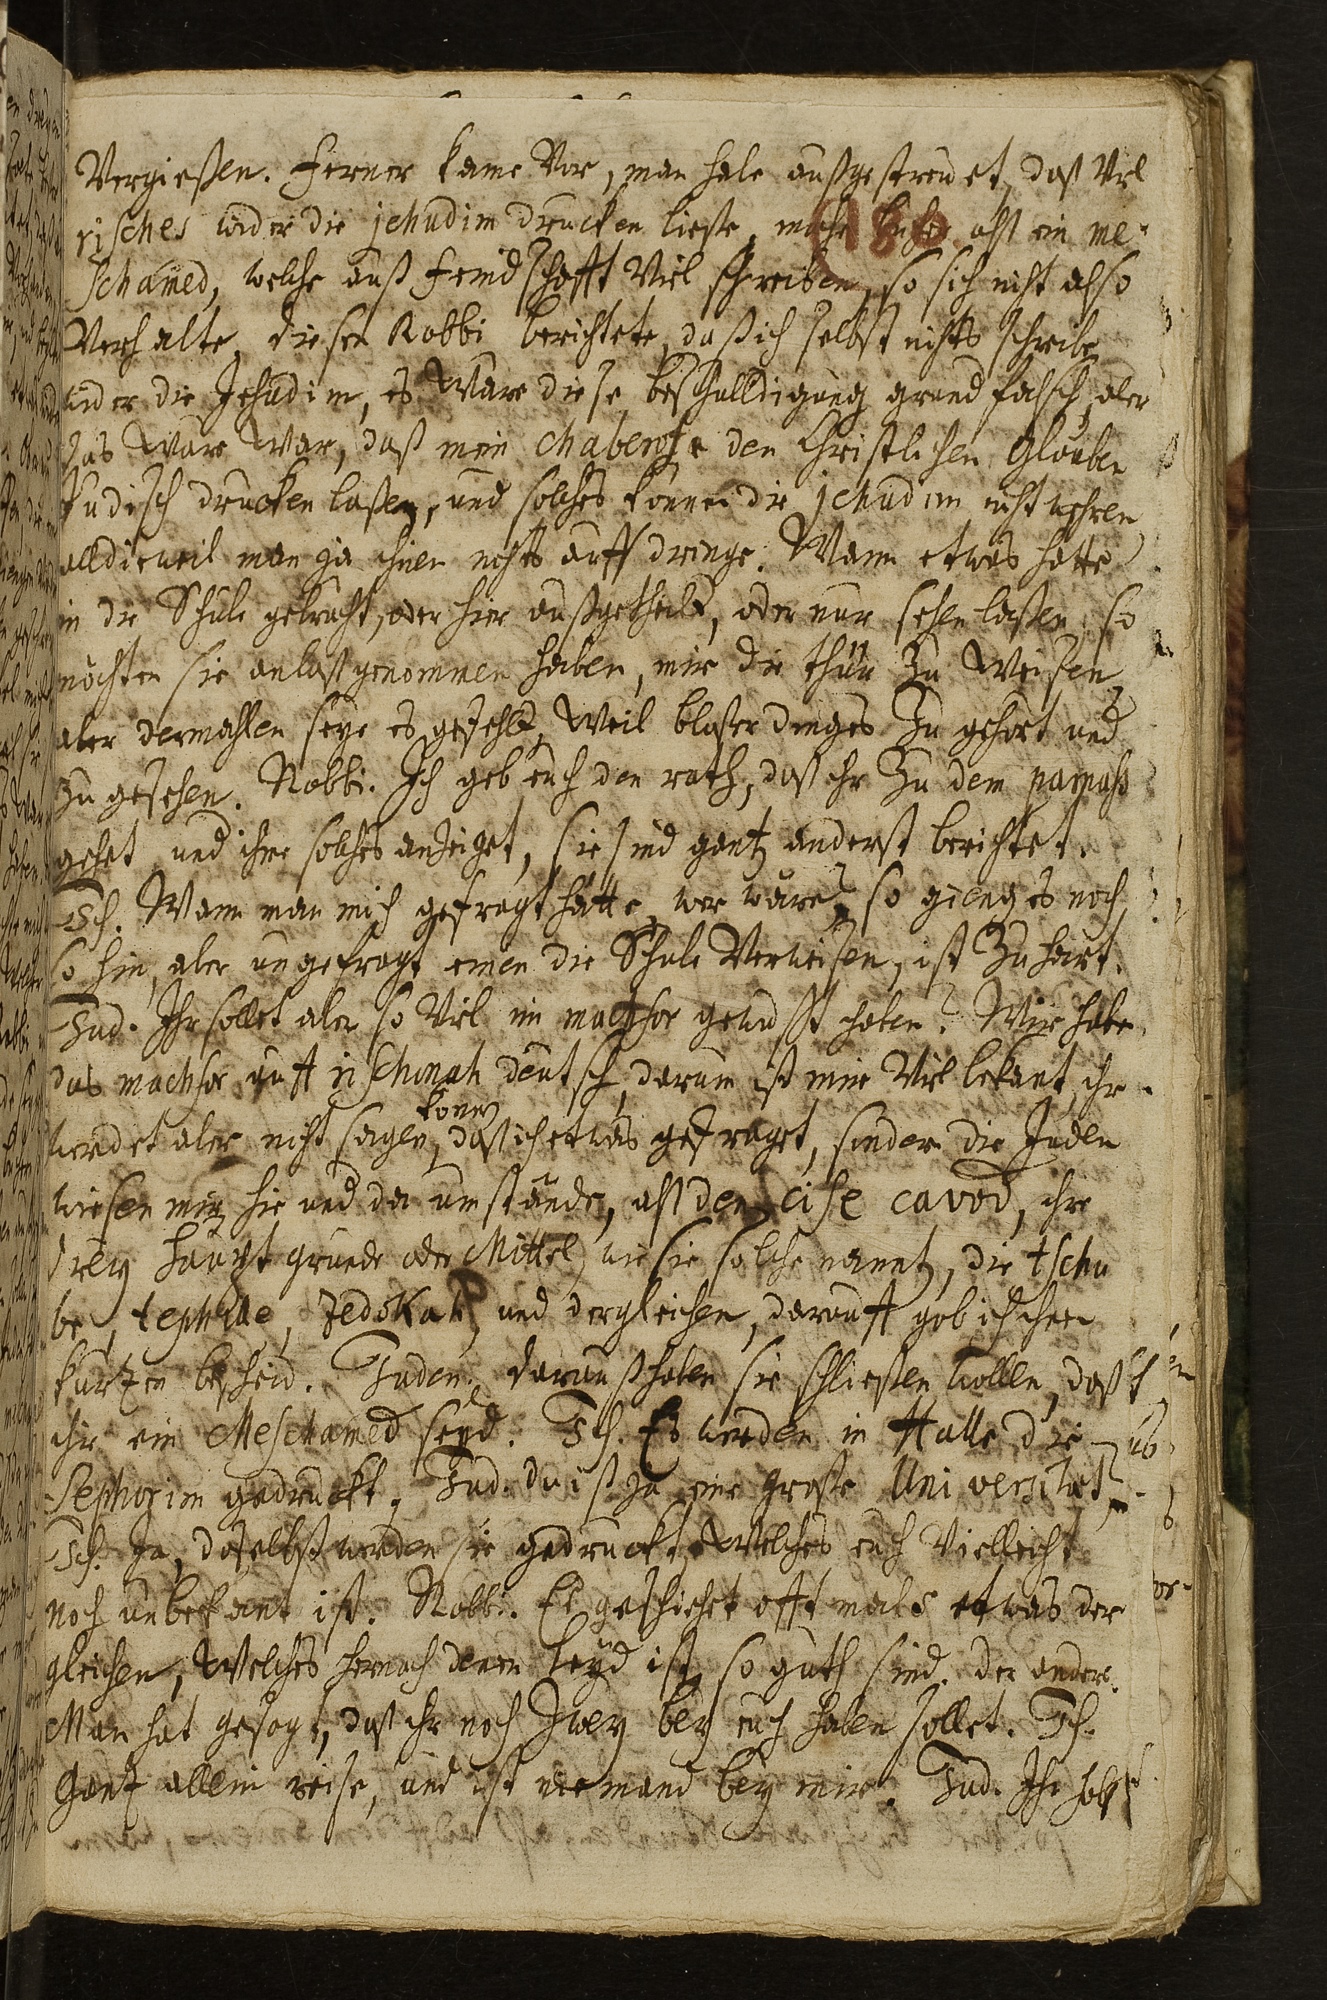 Vergießen. Ferner kame Vor, man habe außgestreuet, daß Viel
risches wider die jehudim drucken ließe, mache bucher alß ein me-
schamed, welche auß feindschafft Viel schreiben, so sich nicht also
Verhalte, dieser Rabbi berichtete, daß ich selbst nichts schreibe
wider die Jehudim, es Ware diese beschuldigung grund falsch, aber
das Ware War, daß mein chaberoße den Christlichen Glauben
Judisch drucken laßen, und solches können die jehudim nicht wehren
alldieweil man ja ihnen nichts auffdringe. Wann etwas hätte
in die Schule gebracht, oder hier außgetheilt, oder nur sehen laßen, so
möchten sie anlaß genommen haben, mir die thür Zu Weisen,
aber dermahlen seye es gefehlt, Weil bloßerdinges Zu gehört und
Zu gesehen. Rabbi. Ich geb euch den rath, daß ihr Zu dem parnaß
gehet und ihme solches anzeiget, sie sind gantz anderst berichtet.
Ich. Wann man mich gefragt hätte, wer wäre, so gieng es noch
so hin, aber ungefragt einen die Schule Verweisen, ist Zu hart.
Jud. Ihr sollet aber so Viel im machsor gewust haben? Wir habe
das machsor auff lischonah deutsch, darum ist mir Viel bekant, ihr
werdet aber nicht sagen könen, daß ich etwas gefraget, sonder die Juden
wiesen mir hie und da umstände, alß den cise cavod, ihre
drey haupt gründe oder Mittel, wie sie solche nannt, die tschu
be, tephilae, zedokah, und dergleichen, darauff gab ich ihnen
kurtzen bescheid. Juden. darauß haben sie schließen wollen, daß
ihr ein Meschamed seyd. Ich. Es werden in Halle die
Sephorim gedruckt. Jud. da ist ja eine große Universitaet.
Ich. Ja, daselbst werden sie gedruckt, Welches euch Vielleicht
noch unbekant ist. Rabbi. Es geschiehet offtmals etwas der
gleichen, Welches hernach denen leyd ist, so guth sind. der ander.
Man hat gesagt, daß ihr noch Zwey bey euch haben sollet. Ich.
Gantz allein reise, und ist niemand bey mir. Jud. Ihr habt